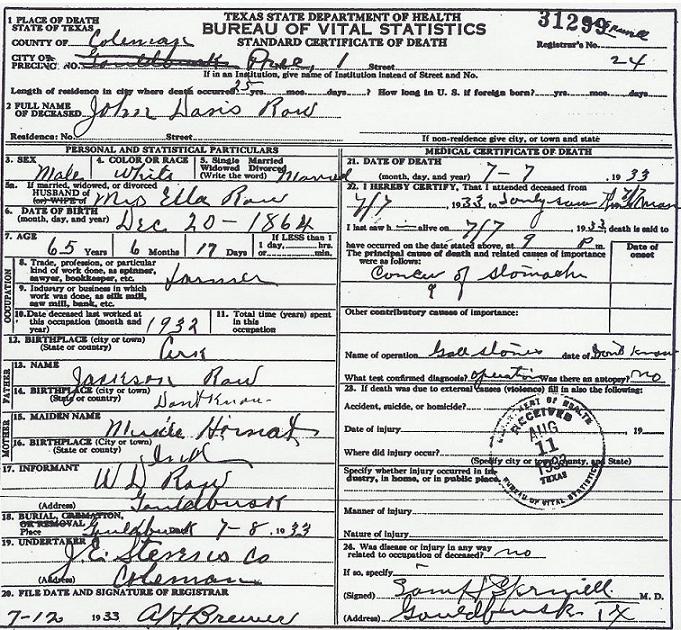 TEXAS STATE DEPARTMENT OF HEALTH
BUREAU OF VITAL STATISTICS
STANDARD CERTIFICATE OF DEATH
31299
Registrar's No. 24
1 PLACE OF DEATH
STATE OF TEXAS
COUNTY OF Coleman
CITY OR PRECINCT NO. Gouldbusk Prec. 1 Street
If in an Institution, give name of Institution instead of Street and No.
Length of residence in city where death occurred 25 yrs. mos. days. How long in U. S. if foreign born? yrs. mos. days
2 FULL NAME OF DECEASED John Davis Row
Residence: No. Street If non-residence give city, or town and state
PERSONAL AND STATISTICAL PARTICULARS
3. SEX Male 4. COLOR OR RACE White 5. Single Married Widowed Divorced (Write the word) Married
5a. If married, widowed, or divorced HUSBAND OF (or) WIFE OF Mrs Ella Row
6. DATE OF BIRTH (month, day, and year) Dec 20-1864
7. AGE 65 Years 6 Months 17 Days If LESS than 1 1 day, hrs. or min.
OCCUPATION
8. Trade, profession, or particular kind of work done, as spinner, sawyer, bookkeeper, etc. Farmer
9. Industry or business in which work was done, as silk mill, saw mill, bank, etc.
10. Date deceased last worked at this occupation (month and year) 1932 11. Total time (years) spent in this occupation
12. BIRTHPLACE (city or town) (State or country) Ark
FATHER
13. NAME Jackson Row
14. BIRTHPLACE (City or town) (State or country) Dont Know
MOTHER
15. MAIDEN NAME
16. BIRTHPLACE (City or town) (State or country)
17. INFORMANT W D Row
(Address) Gouldbusk
18. BURIAL, CREMATION, OR REMOVAL
Place Gouldbusk 7-8, 1933
19. UNDERTAKER J.E. Stevens Co
(Address) Coleman
20. FILE DATE AND SIGNATURE OF REGISTRAR
7-12 1933 A H Brewer
MEDICAL CERTIFICATE OF DEATH
21. DATE OF DEATH (month, day, and year) 7-7, 1933
22. I HEREBY CERTIFY, That I attended deceased from
7/7, 1933 to only saw 7/7
I last saw h alive on 7/7, 1933 death is said to
have occurred on the date stated above, at 9 P m.
The principal cause of death and related causes of importance were as follows: Date of onset
Concer of Stomache
Other contributory causes of importance:
Name of operation Gall Stones date of Dont Know
What test confirmed diagnosis? operation Was there an autopsy? no
23. If death was due to external causes (violence) fill in also the following:
Accident, suicide, or homicide?
Date of injury 19
Where did injury occur?
(Specify city or town, county, and State)
Specify whether injury occurred in industry, in home, or in public place.
DEPARTMENT OF HEALTH
RECEIVED
AUG
11
1933
TEXAS
BUREAU OF VITAL STATISTICS
Manner of injury
Nature of injury
24. Was disease or injury in any way related to occupation of deceased? no
If so, specify
(Signed) M. D.
(Address) Gouldbusk TX